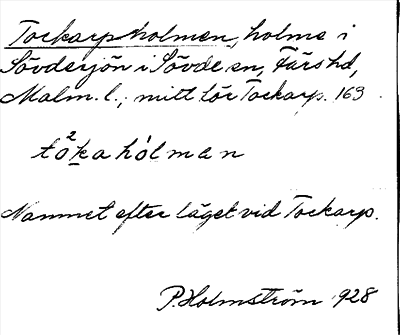 Tockarpsholmen, holme i
Sövdesjön i Sövde sn, Färs hd,
Malm. l., mitt för Tockarp. 163
tò²ka hólman
Namnet efter läget vid Tockarp.
P. Holmström 1928